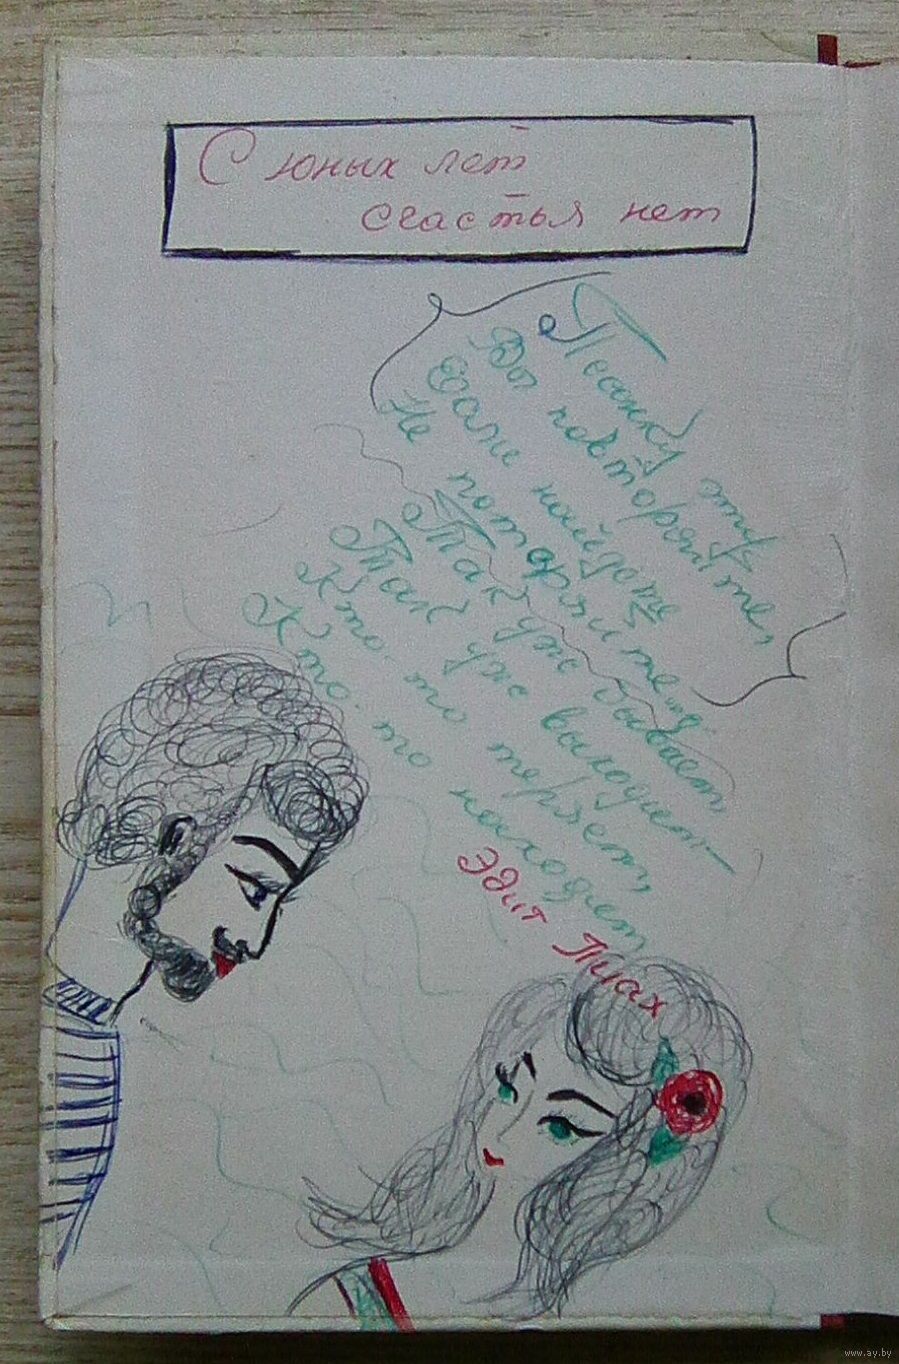 С юных лет
счастья нет
Песенку эту
Вы повторяйте,
Если найдете
Не потеряйте...
Так уж бывает
Так уж выходит
Кто-то теряет,
Кто-то находит
Эдит Пиах
www.ay.by